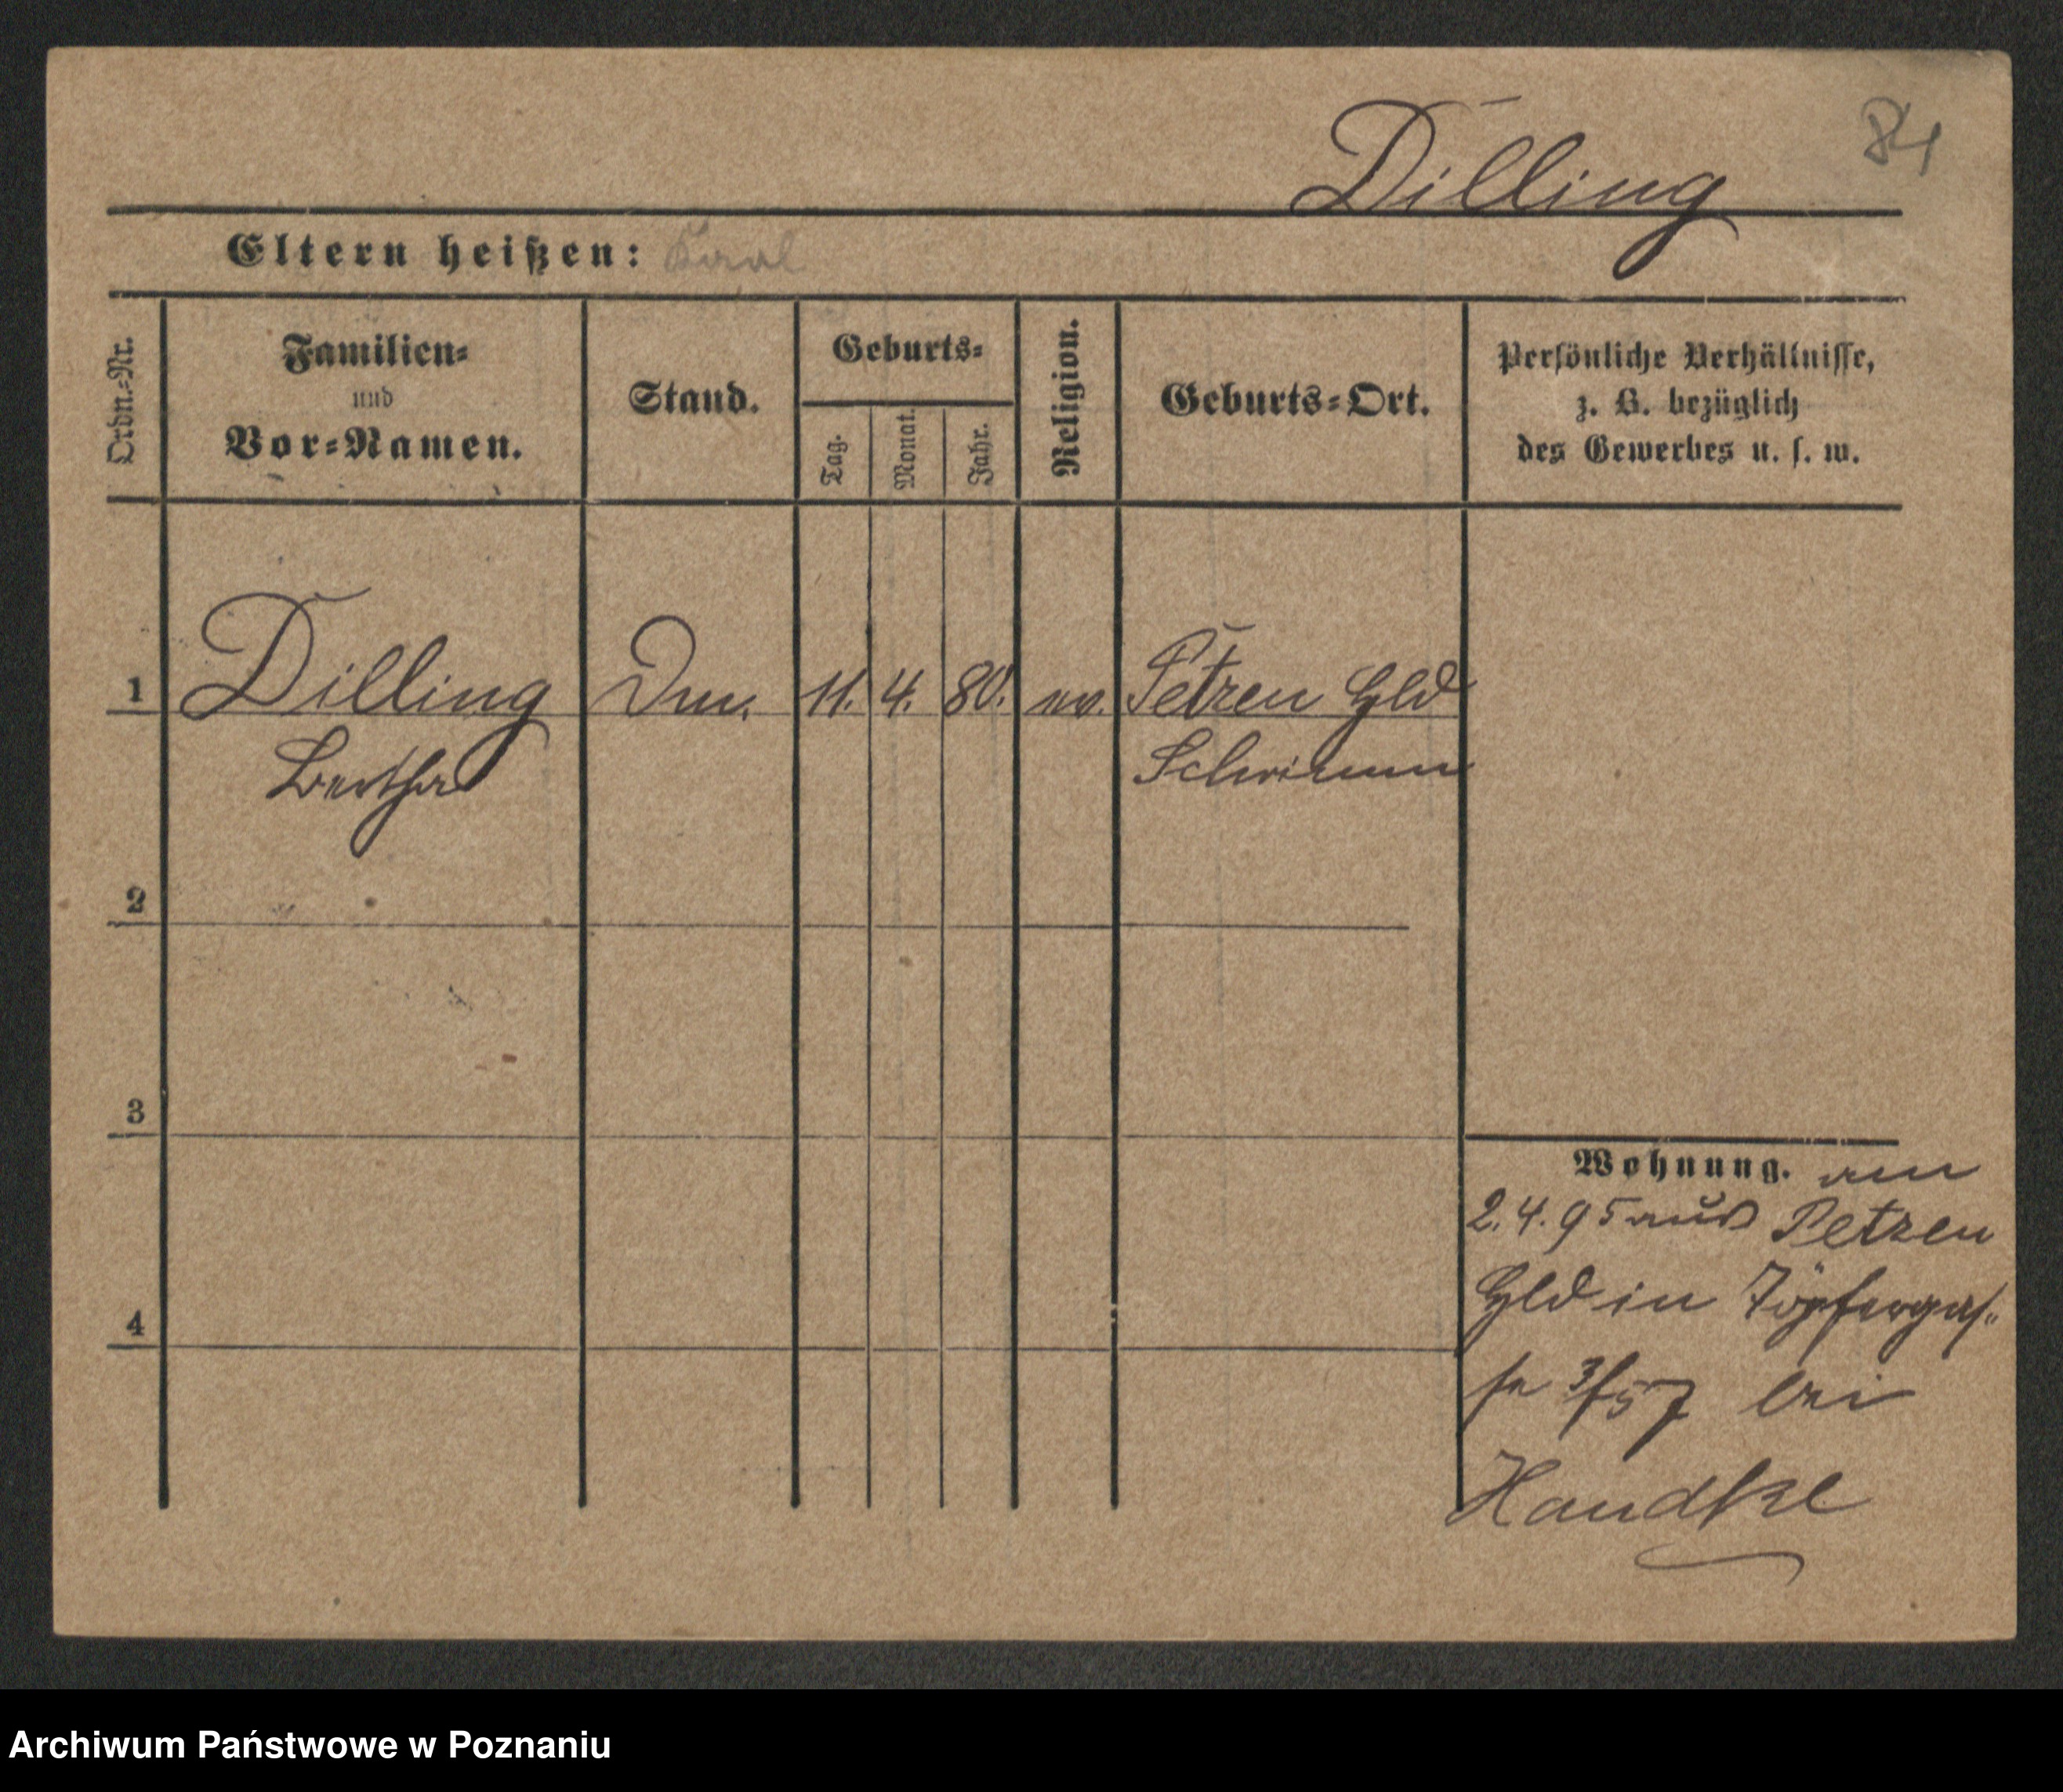 Dilling
84
Eltern heißen: Karl
Ordn.-Nr.
Familien-
und
Vor-Namen.
Stand.
Geburts-
Tag.
Monat.
Jahr.
Religion.
Geburts-Ort.
Persönliche Verhältnisse,
z. B. bezüglich
des Gewerbes u. s. w.
1 Dilling 11. 4. 80. ev. Petzen Hld
Bertha Schrimm
2
3
4
Wohnung. am
2.4.95 aus Petzen
Hld in Töpfergas-
se 3/57 bei
Handke
Archiwum Państwowe w Poznaniu